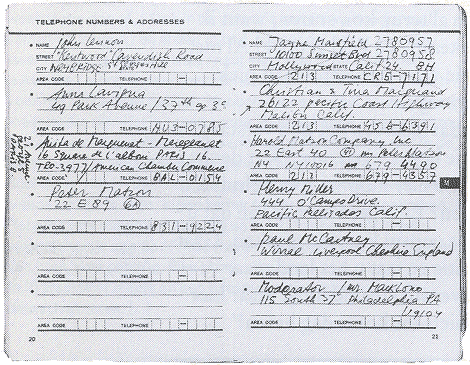 TELEPHONE NUMBERS & ADDRESSES
NAME John Lennon
STREET "Kentwood" Cavendish Road
CITY Weybridge St Georges Hill
AREA CODE TELEPHONE
Anna Lavigna
49 Park Avenue / 37th
AREA CODE TELEPHONE MU3-0785
Anita de
16 Square de l'alboni PARIS 16.
TRO-3977/American Chamber Commerce
AREA CODE TELEPHONE BAL-0154
Peter Matson
22 E 89 6A
AREA CODE TELEPHONE 831-9224
AREA CODE TELEPHONE
AREA CODE TELEPHONE
AREA CODE TELEPHONE
20
NAME Jayne Mansfield 2780957
STREET 10100 Sunset Blvd 2758088
CITY Hollywood STATE Calif 24
AREA CODE 213 TELEPHONE CR5-7171
Christian & Tina Marquand
20122 Pacific Coast Highway
Malibu Calif
AREA CODE 213 TELEPHONE 456-6391
Harold Matson Company Inc
22 East 40 Peter Matson
NY NY 10016 679 4490
AREA CODE 212 TELEPHONE 679-4357
Henry Miller
444 O'Campo Drive.
Pacific Palisades Calif.
AREA CODE TELEPHONE
Paul McCartney
Wirral Liverpool Cheshire England
AREA CODE TELEPHONE
Moderator /
115 South 37 Philadelphia PA
19104
AREA CODE TELEPHONE
21
M